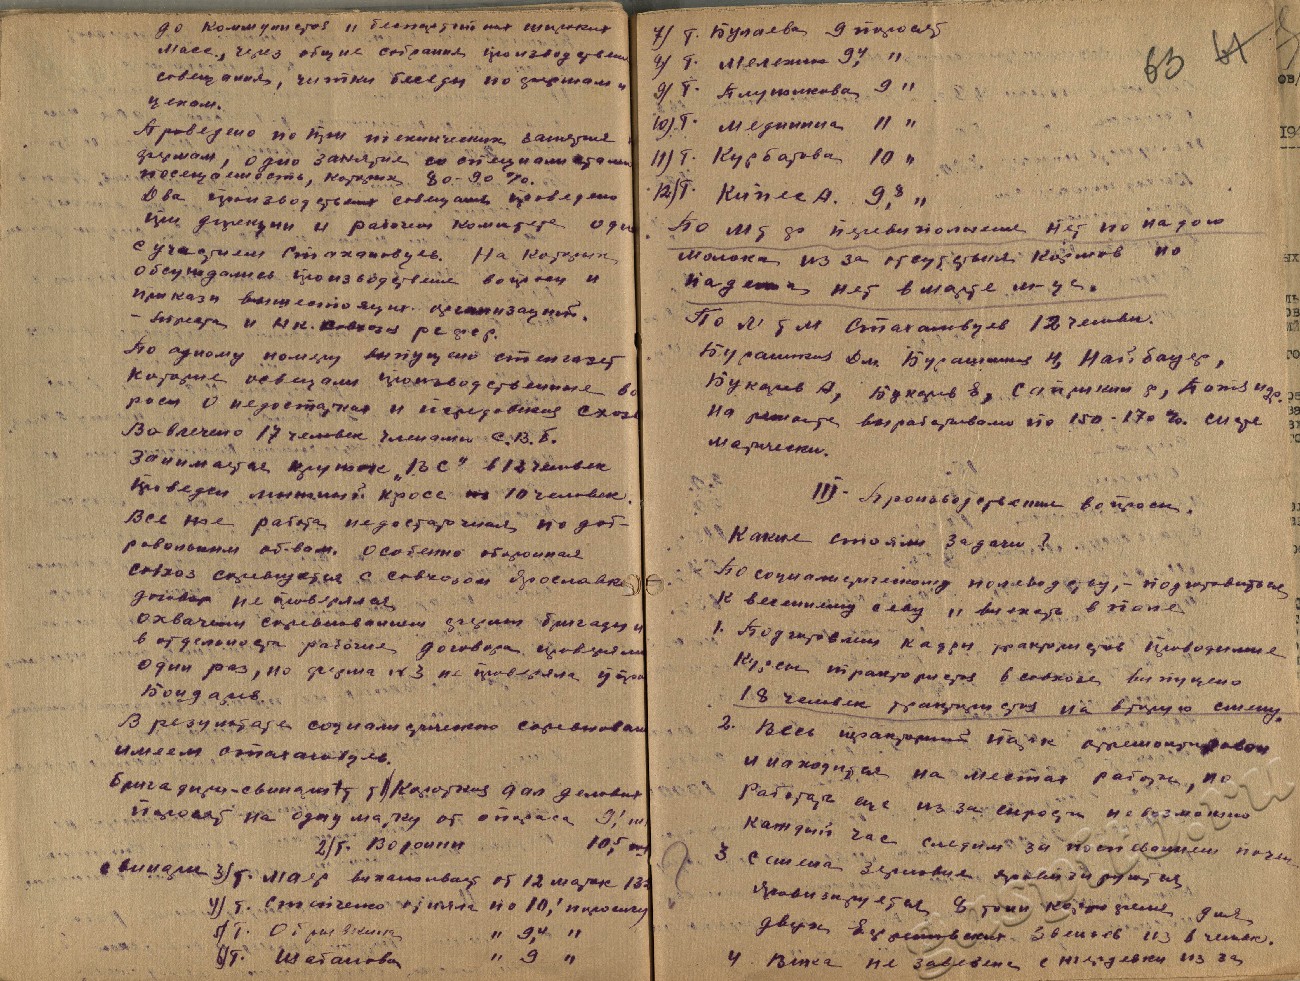 до коммунистов и беспартийных широких
масс, через общие собрания производственные
совещания, читки беседы по фермам и
цехам.
Проведено по три технических занятия
фермам, одно занятие со специалистами
посещаемость, которых 80-90%.
Два производственных совещания проведено
при дирекции и рабочем комитете одно
с участием стахановцев. На которых
обсуждались производственные вопросы и
приказы вышестоящих организаций.
треста и
По одному номеру выпущено стенгазет
которые освещали производственные во
росы о недостатках и передовиках схоза
Вовлечено 17 человек членами С.В.Б.
Занимается кружок "ВС" в 12 человек
проведен лыжный кросс 10 человек.
Все же работа недостаточная по доб-
ровольным об-вам. особенно оборонная
совхоз соревнуется с совхозом Ярославка
договор не проверялся
охвачены соревнованием фермы бригады и
в отдельности рабочие договора проверяли
один раз, но ферма №3 не проверяла у тов
Бондарев.
В результате социалистического соревнования
имеем стахановцев.
Бригадиры-свинари т 1/ Короткий дал деловых
поросят на одну матку от опороса 9,1
2/ т. Воронин 10,5
свинарки 3/ т. Маер выхаживает от 12 маток 132
4/ т. Степченко приняла по 10,1 поросенку
5/ т. " 9,4 "
6/ т. Шабанова " 9 "
7/ т. Булаева 9 поросят
8/ т. Мележик 9,4 "
9/ т. Плутахова 9 "
10/ т. Медынина 11 "
11/ т. Курбатова 10 "
12/ т. Кипес А. 9,8 "
По МТФ перевыполнения нет по надою
молока из за отсутствия кормов но
падежа нет в марте м-це.
По МТМ Стахановцев 12 человек.
Бурашников Дм. Бурашников Н, Найбауер,
Букарев А, Букарев Е, Сапрыкин ф, и др.
на ремонте вырабатывали по 150-170% систе
матически.
III- Производственные вопросы.
Какие стояли задачи?
По социалистическому полеводству, - подготовиться
к весеннему севу и выехать в поле
1. Подготовлены кадры трактористов проводимые
Курсы трактористов в совхозе выпущено
18 человек трактористов на вторую смену.
2. Весь тракторный парк отремонтирован
и находится на местах работы, но
работать еще из за сырости невозможно
каждый час следим за поспеванием почвы
3. Семена зерновые яровизируются
яровизируется 8 тонн картофеля для
двух звеньев из 8 человек.
4. Вика не завезена с из за
63